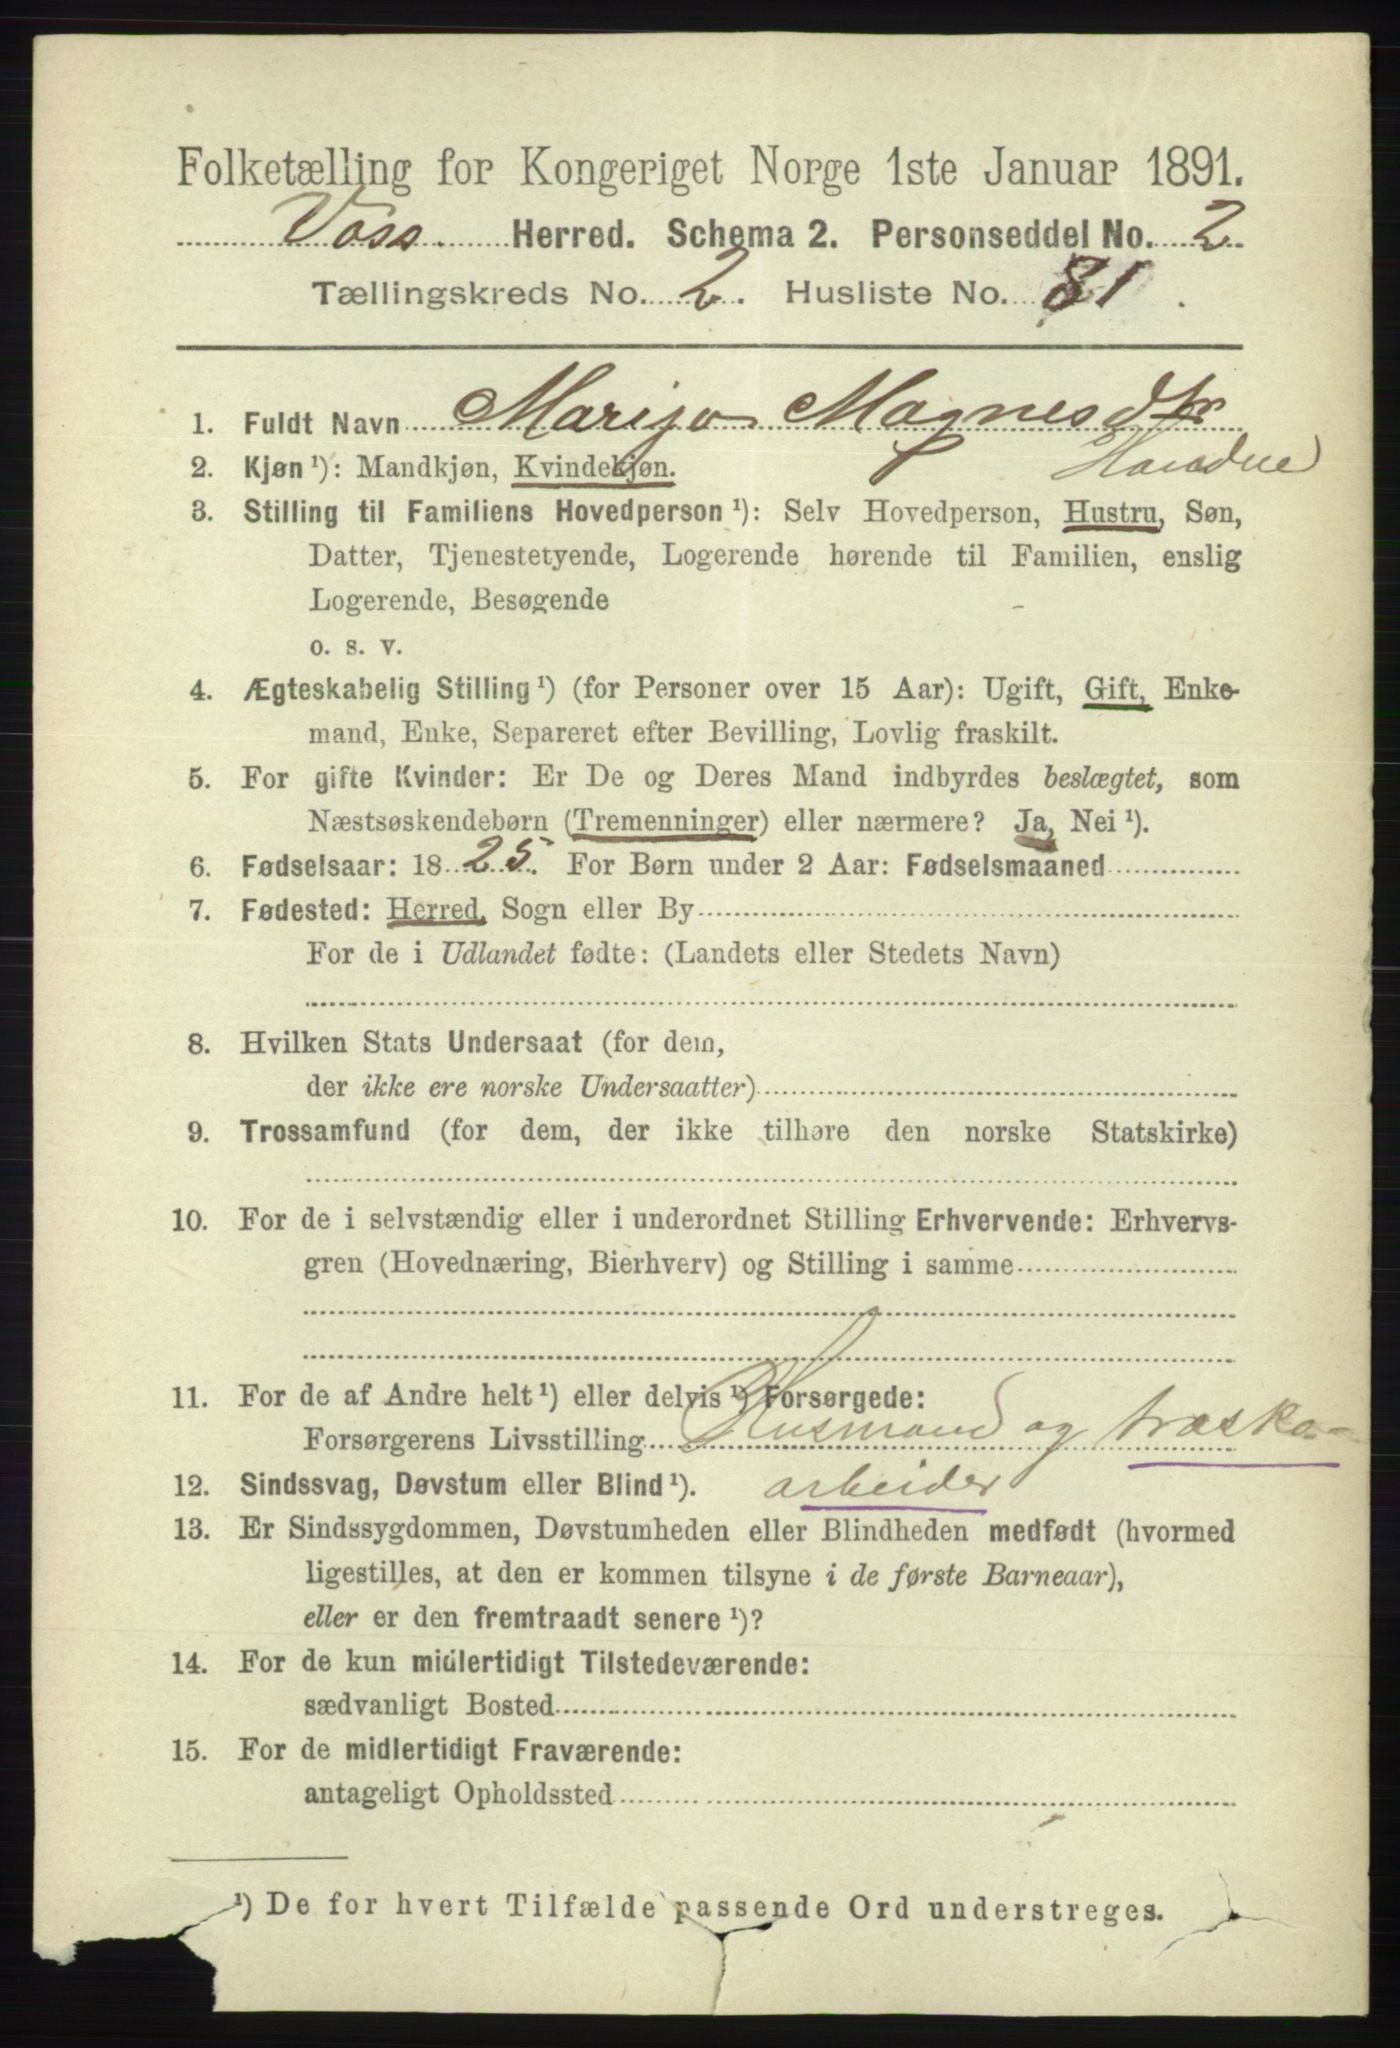 Folketælling for Kongeriget Norge 1ste Januar 1891.
Voss. Herred. Schema 2. Personseddel No. 2
Tællingskreds No. 2. Husliste No. 81.
1. Fuldt Navn Marija Magnesdtr
2. Kjøn ¹): Mandkjøn, Kvindekjøn.
3. Stilling til Familiens Hovedperson ¹): Selv Hovedperson, Hustru, Søn,
Datter, Tjenestetyende, Logerende hørende til Familien, enslig
Logerende, Besøgende
o. s. v.
4. Ægteskabelig Stilling ¹) (for Personer over 15 Aar): Ugift, Gift, Enke-
mand, Enke, Separeret efter Bevilling, Lovlig fraskilt.
5. For gifte Kvinder: Er De og Deres Mand indbyrdes beslægtet, som
Næstsøskendebørn (Tremenninger) eller nærmere? Ja, Nei ¹).
6. Fødselsaar: 1825. For Børn under 2 Aar: Fødselsmaaned
7. Fødested: Herred, Sogn eller By
For de i Udlandet fødte: (Landets eller Stedets Navn)
8. Hvilken Stats Undersaat (for dem,
der ikke ere norske Undersaatter)
9. Trossamfund (for dem, der ikke tilhøre den norske Statskirke)
10. For de i selvstændig eller i underordnet Stilling Erhvervende: Erhvervs-
gren (Hovednæring, Bierhverv) og Stilling i samme
11. For de af Andre helt ¹) eller delvis ¹) Forsørgede:
Forsørgerens Livsstilling Husmand og træsko-
12. Sindssvag, Døvstum eller Blind ¹). arbeider
13. Er Sindssygdommen, Døvstumheden eller Blindheden medfødt (hvormed
ligestilles, at den er kommen tilsyne i de første Barneaar),
eller er den fremtraadt senere ¹)?
14. For de kun midlertidigt Tilstedeværende:
sædvanligt Bosted
15. For de midlertidigt Fraværende:
antageligt Opholdssted
¹) De for hvert Tilfælde passende Ord understreges.